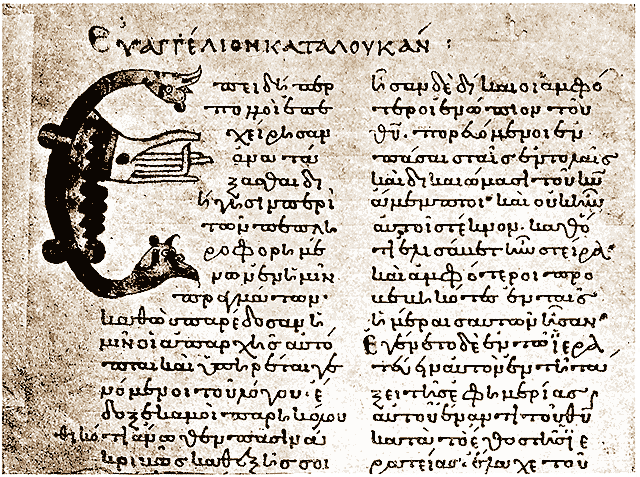 Εὐαγγέλιον κατὰ Λουκάν :
Ἐπειδήπερ
πολλοὶ ἐπε
χείρησαν
ἀνατά
ξασθαι δι
ήγησιν περὶ
τῶν πεπλη
ροφορημέ
νων ἐν ἡμῖν
πραγμάτων·
καθὼς παρέδοσαν ἡ
μῖν οἱ ἀπαρχῆς αὐτό
πται καὶ ὑπηρέται γε
νόμενοι τοῦ λόγου· ἔ
δοξε κἀμοὶ παρηκολου
θηκότι ἄνωθεν πᾶσιν ἀ
κριβῶς καθεξῆς σοι
ἦσαν δὲ δίκαιοι ἀμφό
τεροι ἐνώπιον τοῦ
θυ. πορευόμενοι ἐν
πάσαις ταῖς ἐντολαῖς
καὶ δικαιώμασι τοῦ κυ
ἄμεμπτοι· καὶ οὐκ ἦν
αὐτοῖς τέκνον. καθό
τι ἐλισάβετ ἦν στεῖρα·
καὶ ἀμφότεροι προ
βεβηκότες ἐν ταῖς
ἡμέραις αὐτῶν ἦσαν·
Ἐγένετο δὲ ἐν τῷ ἱερα
τεύειν αὐτὸν ἐν τῇ τά
ξει τῆς ἐφημερίας
αὐτοῦ ἔναντι τοῦ θυ
κατὰ τὸ ἔθος τῆς ἱε
ρατείας· ἔλαχε τοῦ